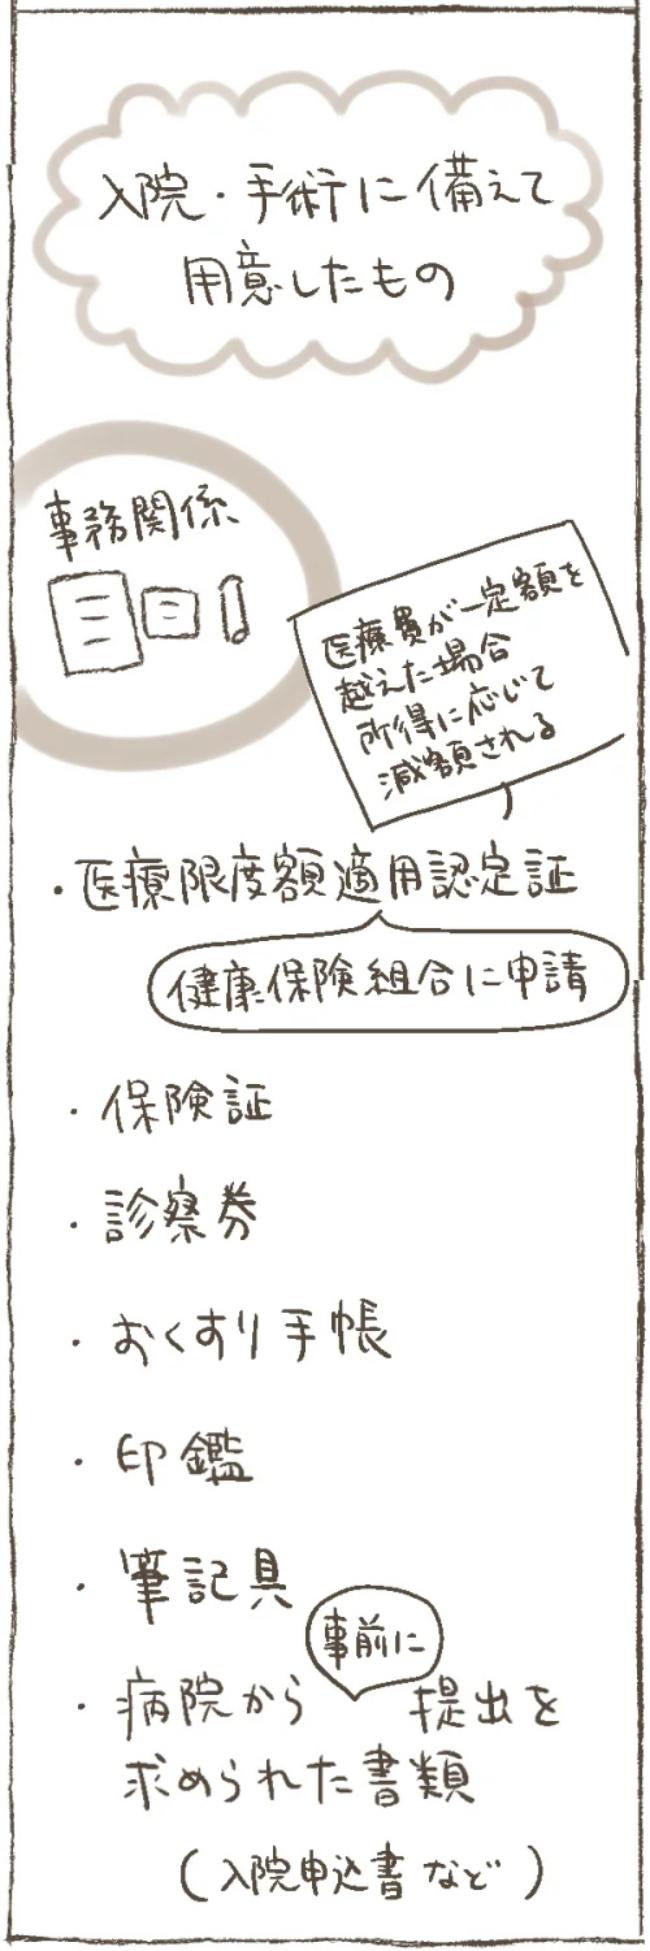 入院・手術に備えて
用意したもの
事務関係
医療費が一定額を
越えた場合
所得に応じて
減額される
・医療限度額適用認定証
健康保険組合に申請
・保険証
・診察券
・おくすり手帳
・印鑑
・筆記具
事前に
・病院から 提出を
求められた書類
(入院申込書など)